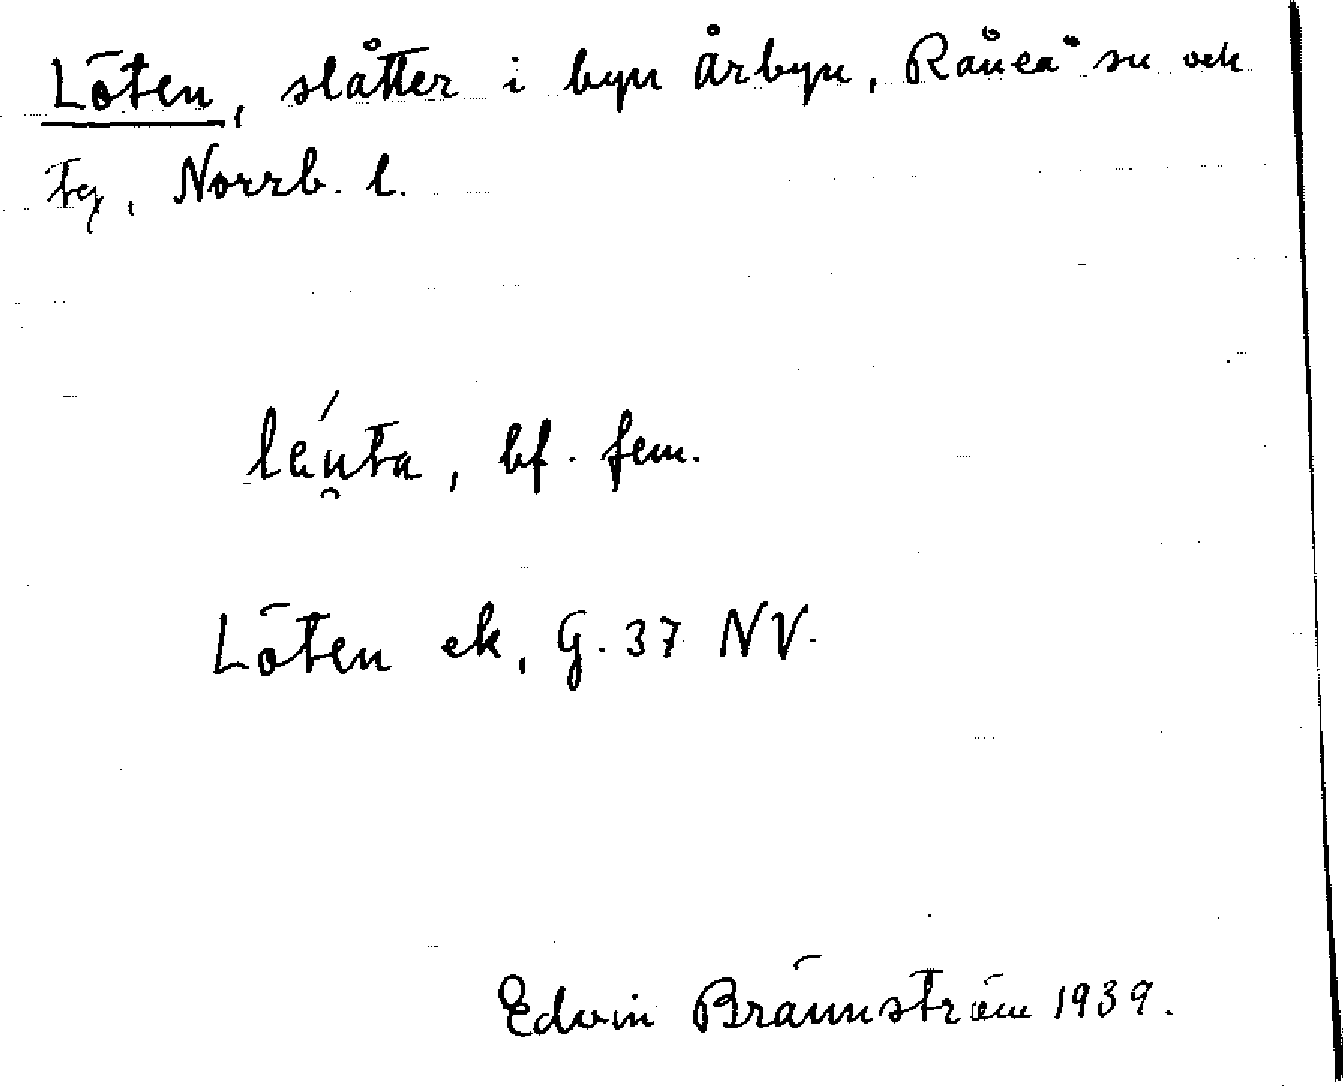 Löten, slåtter i byn Årbyn, Råneå sn och
tg, Norrb. l.
bf. fem.
Löten ek, G. 37 NV.
Edvin Brännström 1939.